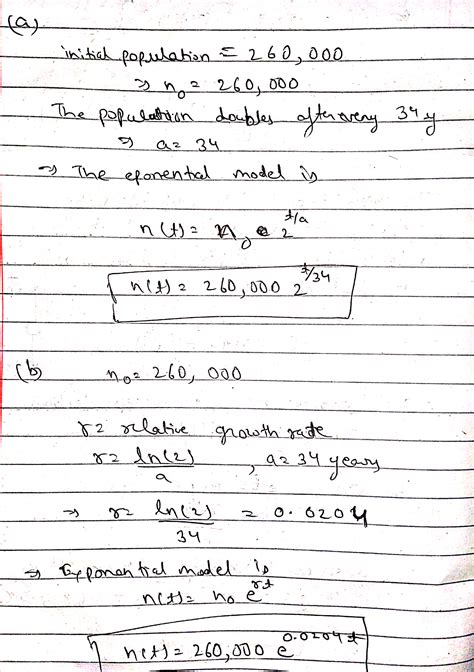 (a)
initial population = 260,000
⇒ n₀ = 260,000
The population doubles after every 34 y
⇒ a = 34
⇒ The eponential model is
n(t) = n₀ 2^(t/a)
n(t) = 260,000 2^(t/34)
(b) n₀ = 260, 000
r = relative growth rate
r = ln(2)/a , a = 34 years
⇒ r = ln(2)/34 = 0.0204
⇒ Exponential model is
n(t) = n₀ e^(rt)
n(t) = 260,000 e^(0.0204t)